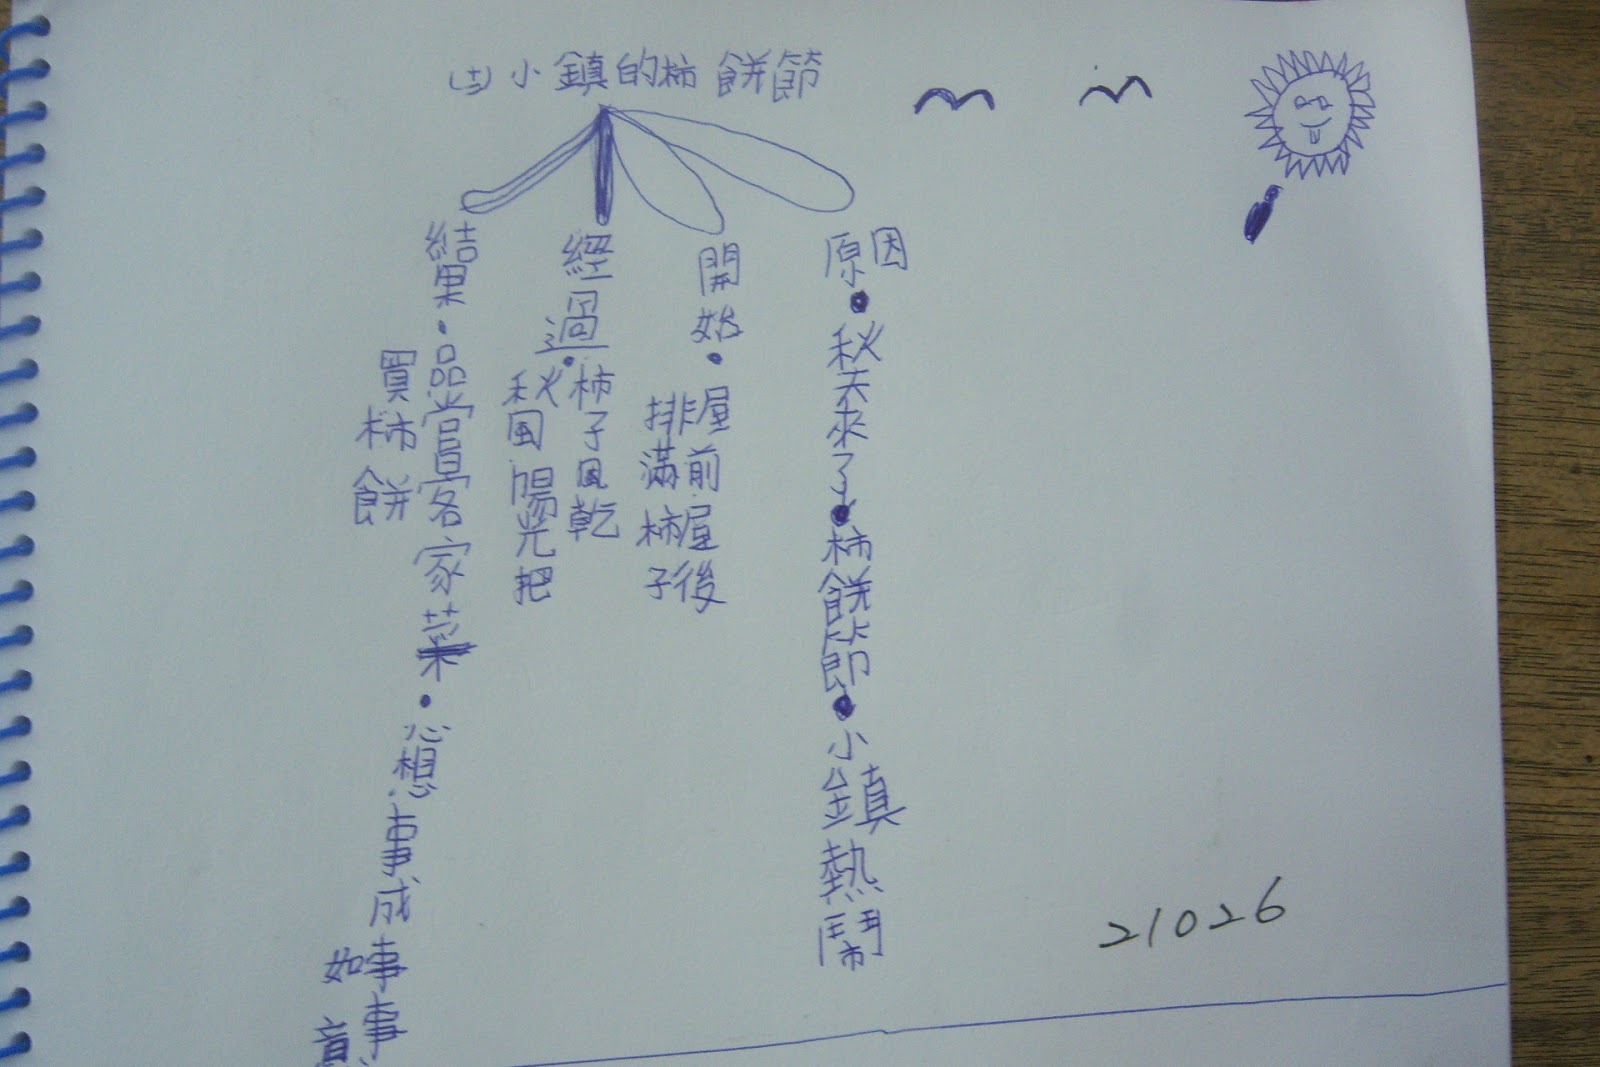 (十三)小鎮的柿餅節
原因•秋天來了•柿餅節•小鎮熱鬧
開始•屋前屋後
排滿柿子
經過•柿子風乾
秋風陽光把
結果•品嘗客家菜•心想事成事事
買柿餅
如意
21026